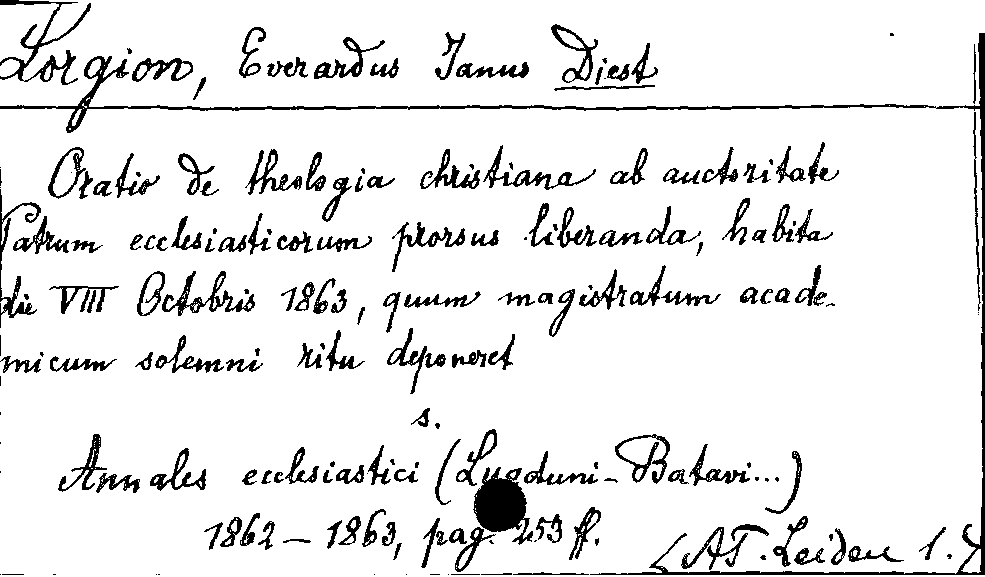 Lorgion, Everardus Janus Diest
Oratio de theologia christiana ab auctoritate
Patrum ecclesiasticorum prorsus liberanda, habita
die VIII Octobris 1863, quum magistratum acade-
micum solemni ritu deponeret
s.
Annales ecclesiastici (Lugduni-Batavi...)
1862 – 1863, pag. 253 ff.
(AT. Leiden 1.)